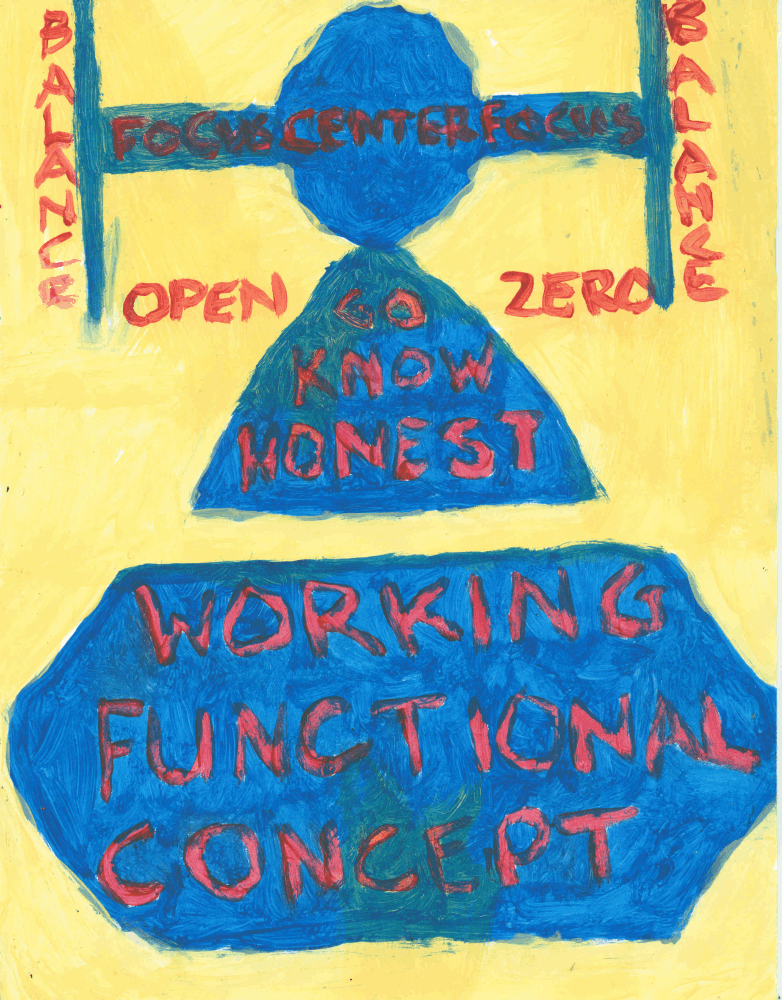 BALANCE
FOCUS CENTER FOCUS
BALANCE
OPEN
GO
ZERO
KNOW
HONEST
WORKING
FUNCTIONAL
CONCEPT